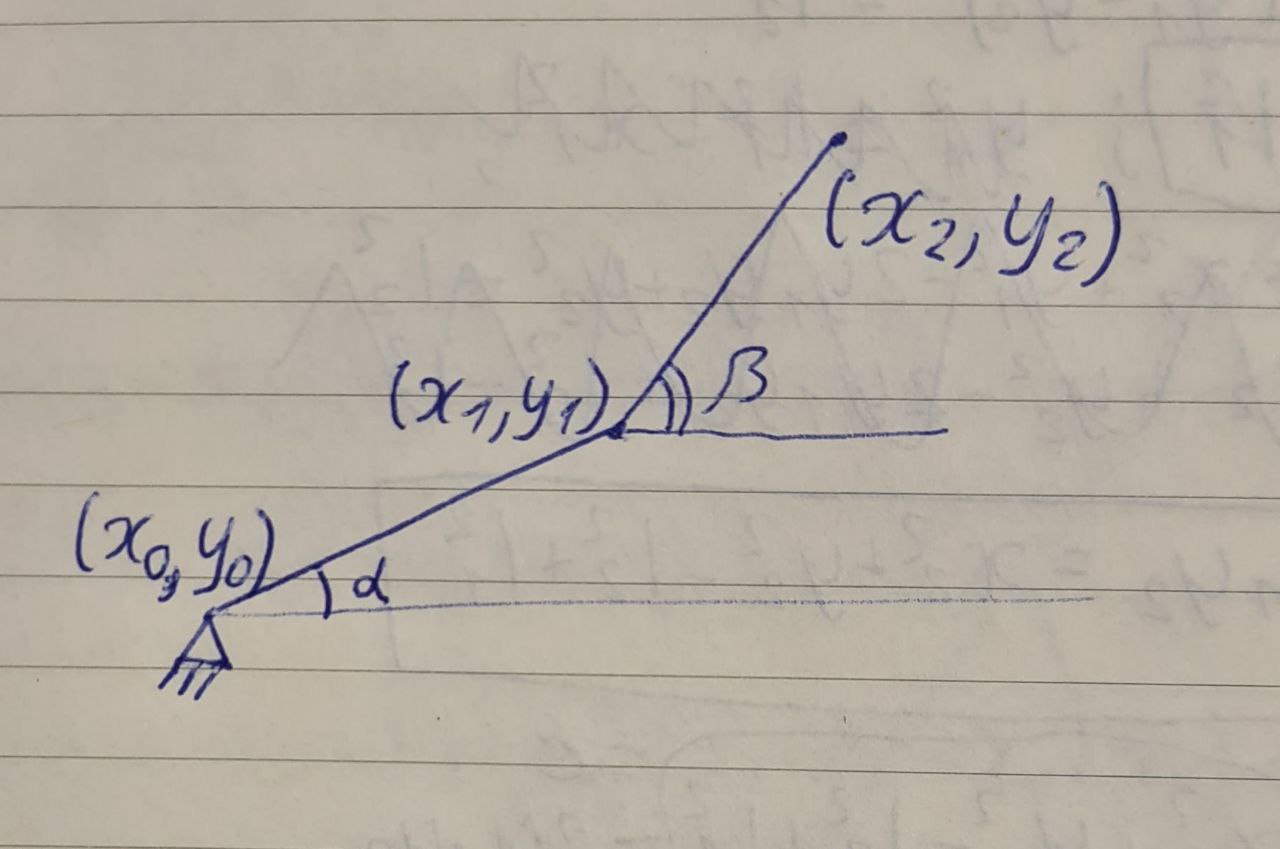 (x₂, y₂)
(x₁, y₁) β
(x₀, y₀)
α